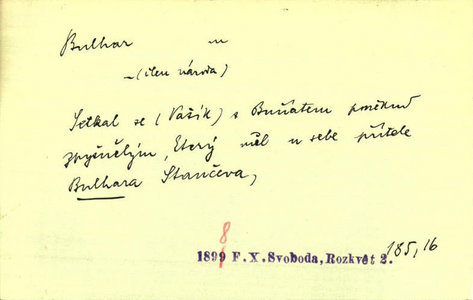 Bulhar m
–(člen národa)
Setkal se (Vašík) s Buňatem poněkud
zpyšnělým, který měl u sebe přítele
Bulhara Stančeva,
8
1899 F. X. Svoboda, Rozkvět 2. 185, 16